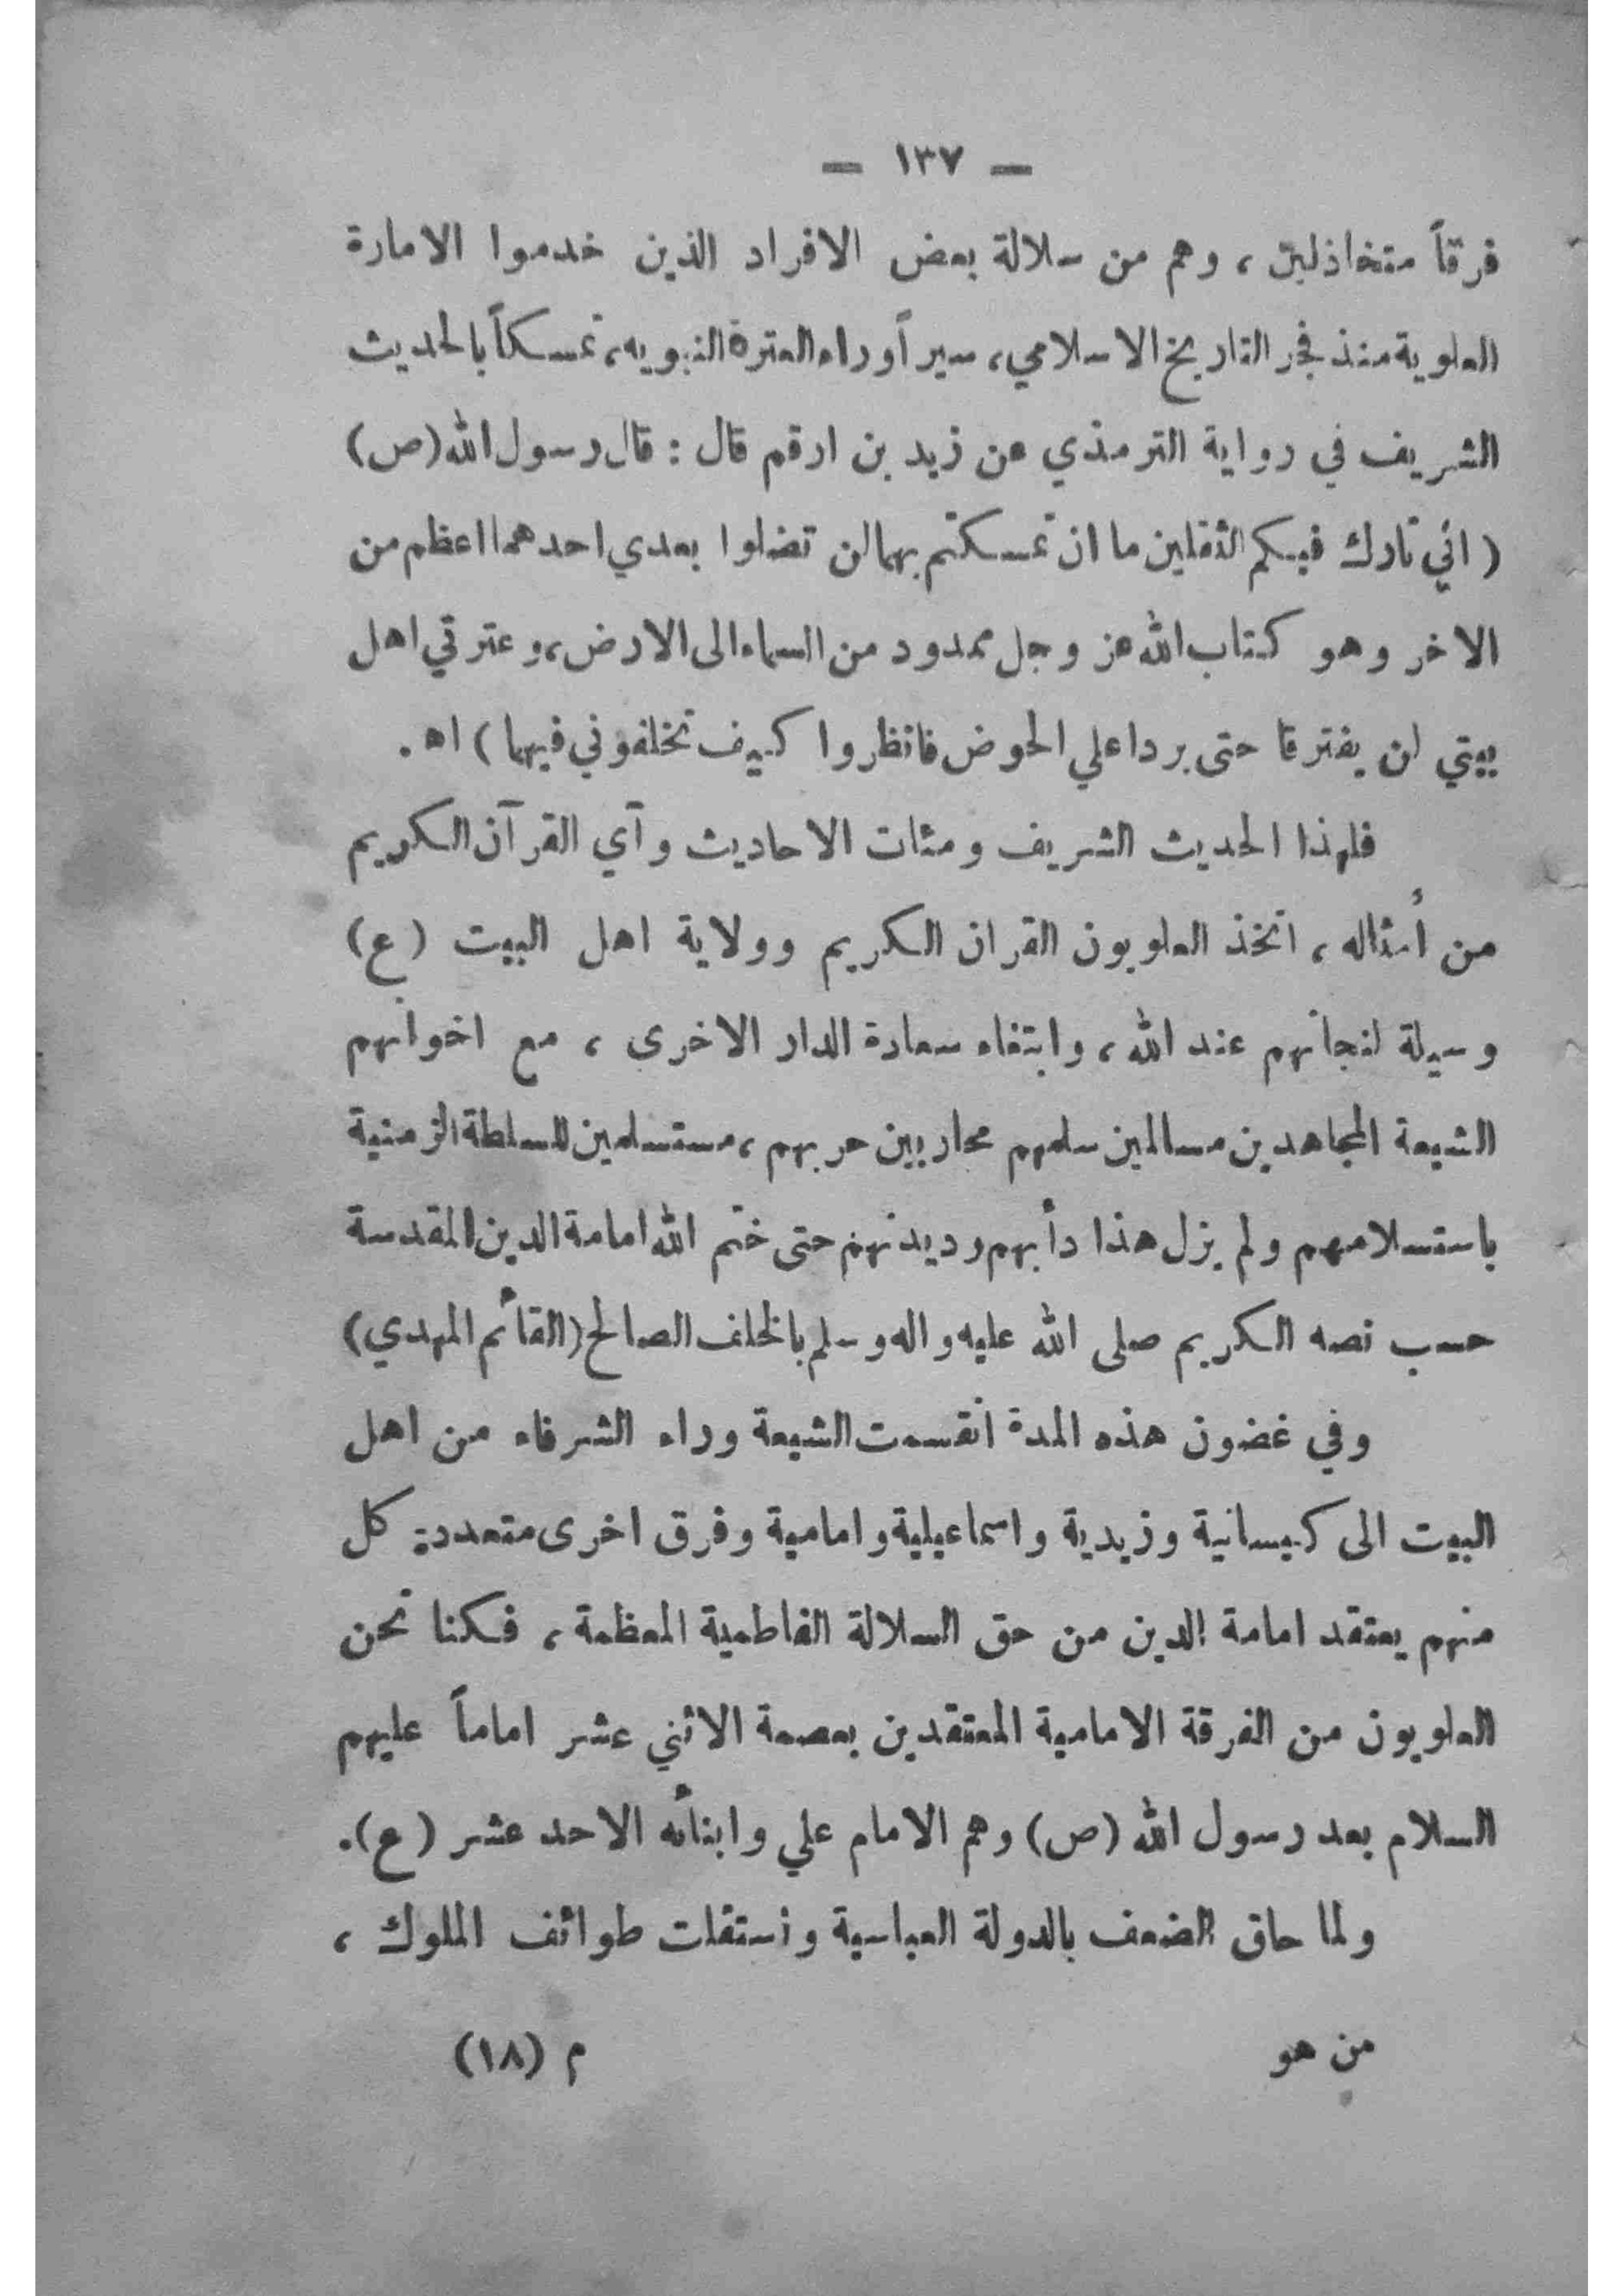 — ١٣٧ —
فرقاً متخاذلين ، وهم من سلالة بعض الافراد الذين خدموا الامارة
العلوية منذ فجر التاريخ الاسلامي، سيراً وراء العترة النبويه، تمسكاً بالحديث
الشريف في رواية الترمذي عن زيد بن ارقم قال : قال رسول الله (ص)
( اني تارك فيكم الثقلين ما ان تمسكتم بهما لن تضلوا بعدي احدهما اعظم من
الاخر وهو كتاب الله عز وجل ممدود من السماء الى الارض، وعترتي اهل
بيتي لن يفترقا حتى يردا علي الحوض فانظروا كيف تخلفوني فيهما ) اه .
فلهذا الحديث الشريف ومئات الاحاديث وآي القرآن الكريم
من أمثاله ، اتخذ العلويون القران الكريم وولاية اهل البيت (ع)
وسيلة لنجاتهم عند الله ، وابتغاء سعادة الدار الاخرى ، مع اخوانهم
الشيعة المجاهدين مسالمين سلمهم محاربين حربهم ، مستسلمين للسلطة الزمنية
باستسلامهم ولم يزل هذا دأبهم وديدنهم حتى ختم الله امامة الدين المقدسة
حسب نصه الكريم صلى الله عليه واله وسلم بالخلف الصالح (القائم المهدي)
وفي غضون هذه المدة انقسمت الشيعة وراء الشرفاء من اهل
البيت الى كيسانية وزيدية واسماعيلية وامامية وفرق اخرى متعددة كل
منهم يعتقد امامة الدين من حق السلالة الفاطمية المعظمة ، فكنا نحن
العلويون من الفرقة الامامية المعتقدين بعصمة الاثني عشر اماماً عليهم
السلام بعد رسول الله (ص) وهم الامام علي وابنائه الاحد عشر (ع).
ولما حاق الضعف بالدولة العباسية واستقلت طوائف الملوك ،
من هو م (١٨)